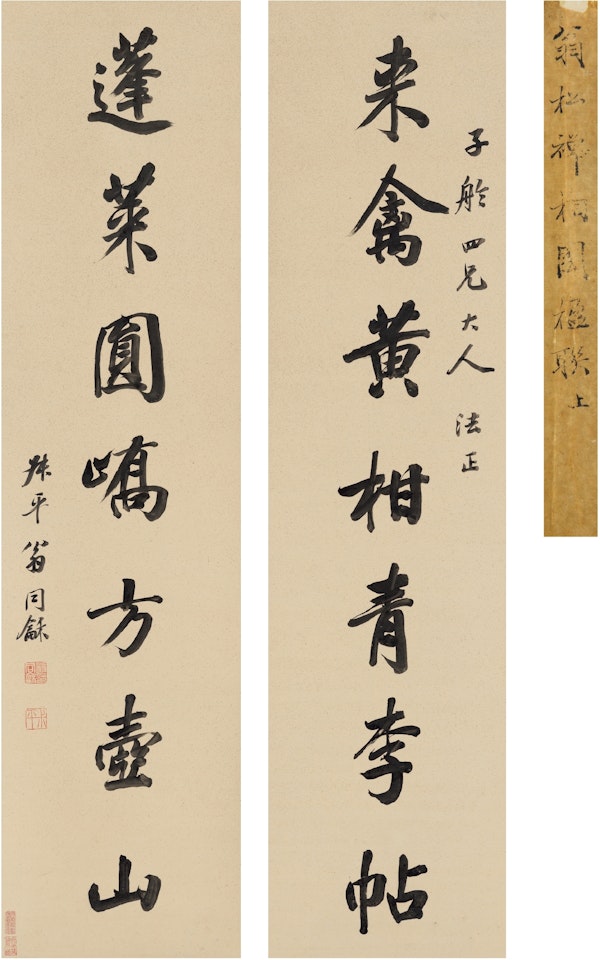 翁松禪相國楹聯 上
子舲四兄大人 法正
来禽黄柑青李帖
蓬萊圓嶠方壺山
叔平翁同龢